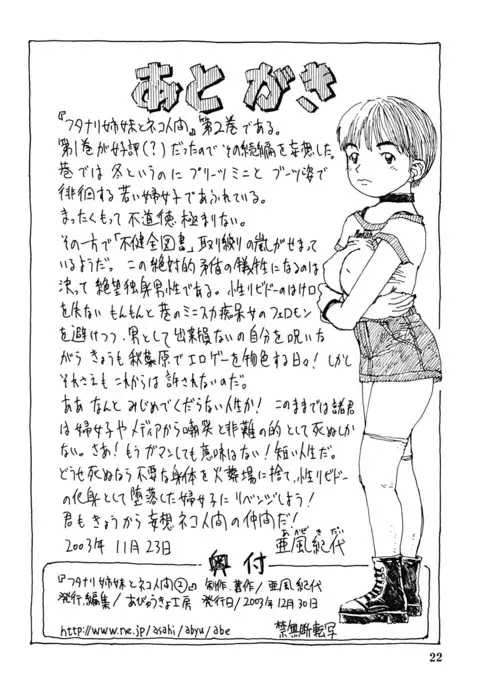 あとがき
『フタナリ姉妹とネコ人間』第2巻である。
第1巻が好評(?)だったのでその続編を妄想した。
巷では冬というのにプリーツミニとブーツ姿で
徘徊する若い婦女子であふれている。
まったくもって不道徳極まりない。
その一方で「不健全図書」取り締りの嵐がせまって
いるようだ。この絶対的矛盾の犠牲になるのは
決って絶望独身男性である。性リビドーのはけ口
を失ない もんもんと巷のミニスカ痴呆女のフェロモン
を避けつつ、男として出来損ないの自分を呪いな
がら きょうも秋葉原でエロゲーを物色する日々!しかし
それさえもこれからは許されないのだ。
ああ なんと みじめでくだらない人生か! このままでは諸君
は婦女子やメディアから嘲笑と非難の的として死ぬしか
ない。さあ!もうガマンしても意味はない!短い人生だ。
どうせ死ぬなら不要な身体を火葬場に捨て、性リビドー
の化身として堕落した婦女子にリベンジしよう!
君もきょうから妄想ネコ人間の仲間だ!
2003年 11月23日
あがぜきだい
亜風紀代
奥付
『フタナリ姉妹とネコ人間②』 制作.著作/亜風紀代
発行.編集/あびゅうきょ工房 発行日/2003年12月30日
http://www.ne.jp/asahi/abyu/abe 禁無断転写
22